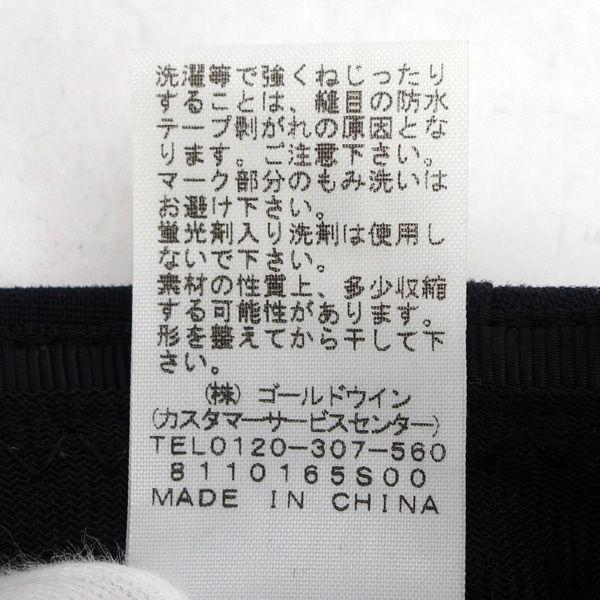 洗濯等で強くねじったり
することは、縫目の防水
テープ剥がれの原因とな
ります。ご注意下さい。
マーク部分のもみ洗いは
お避け下さい。
蛍光剤入り洗剤は使用し
ないで下さい。
素材の性質上、多少収縮
する可能性があります。
形を整えてから干して下
さい。
(株)ゴールドウイン
(カスタマーサービスセンター)
TEL0120-307-560
8110165S00
MADE IN CHINA